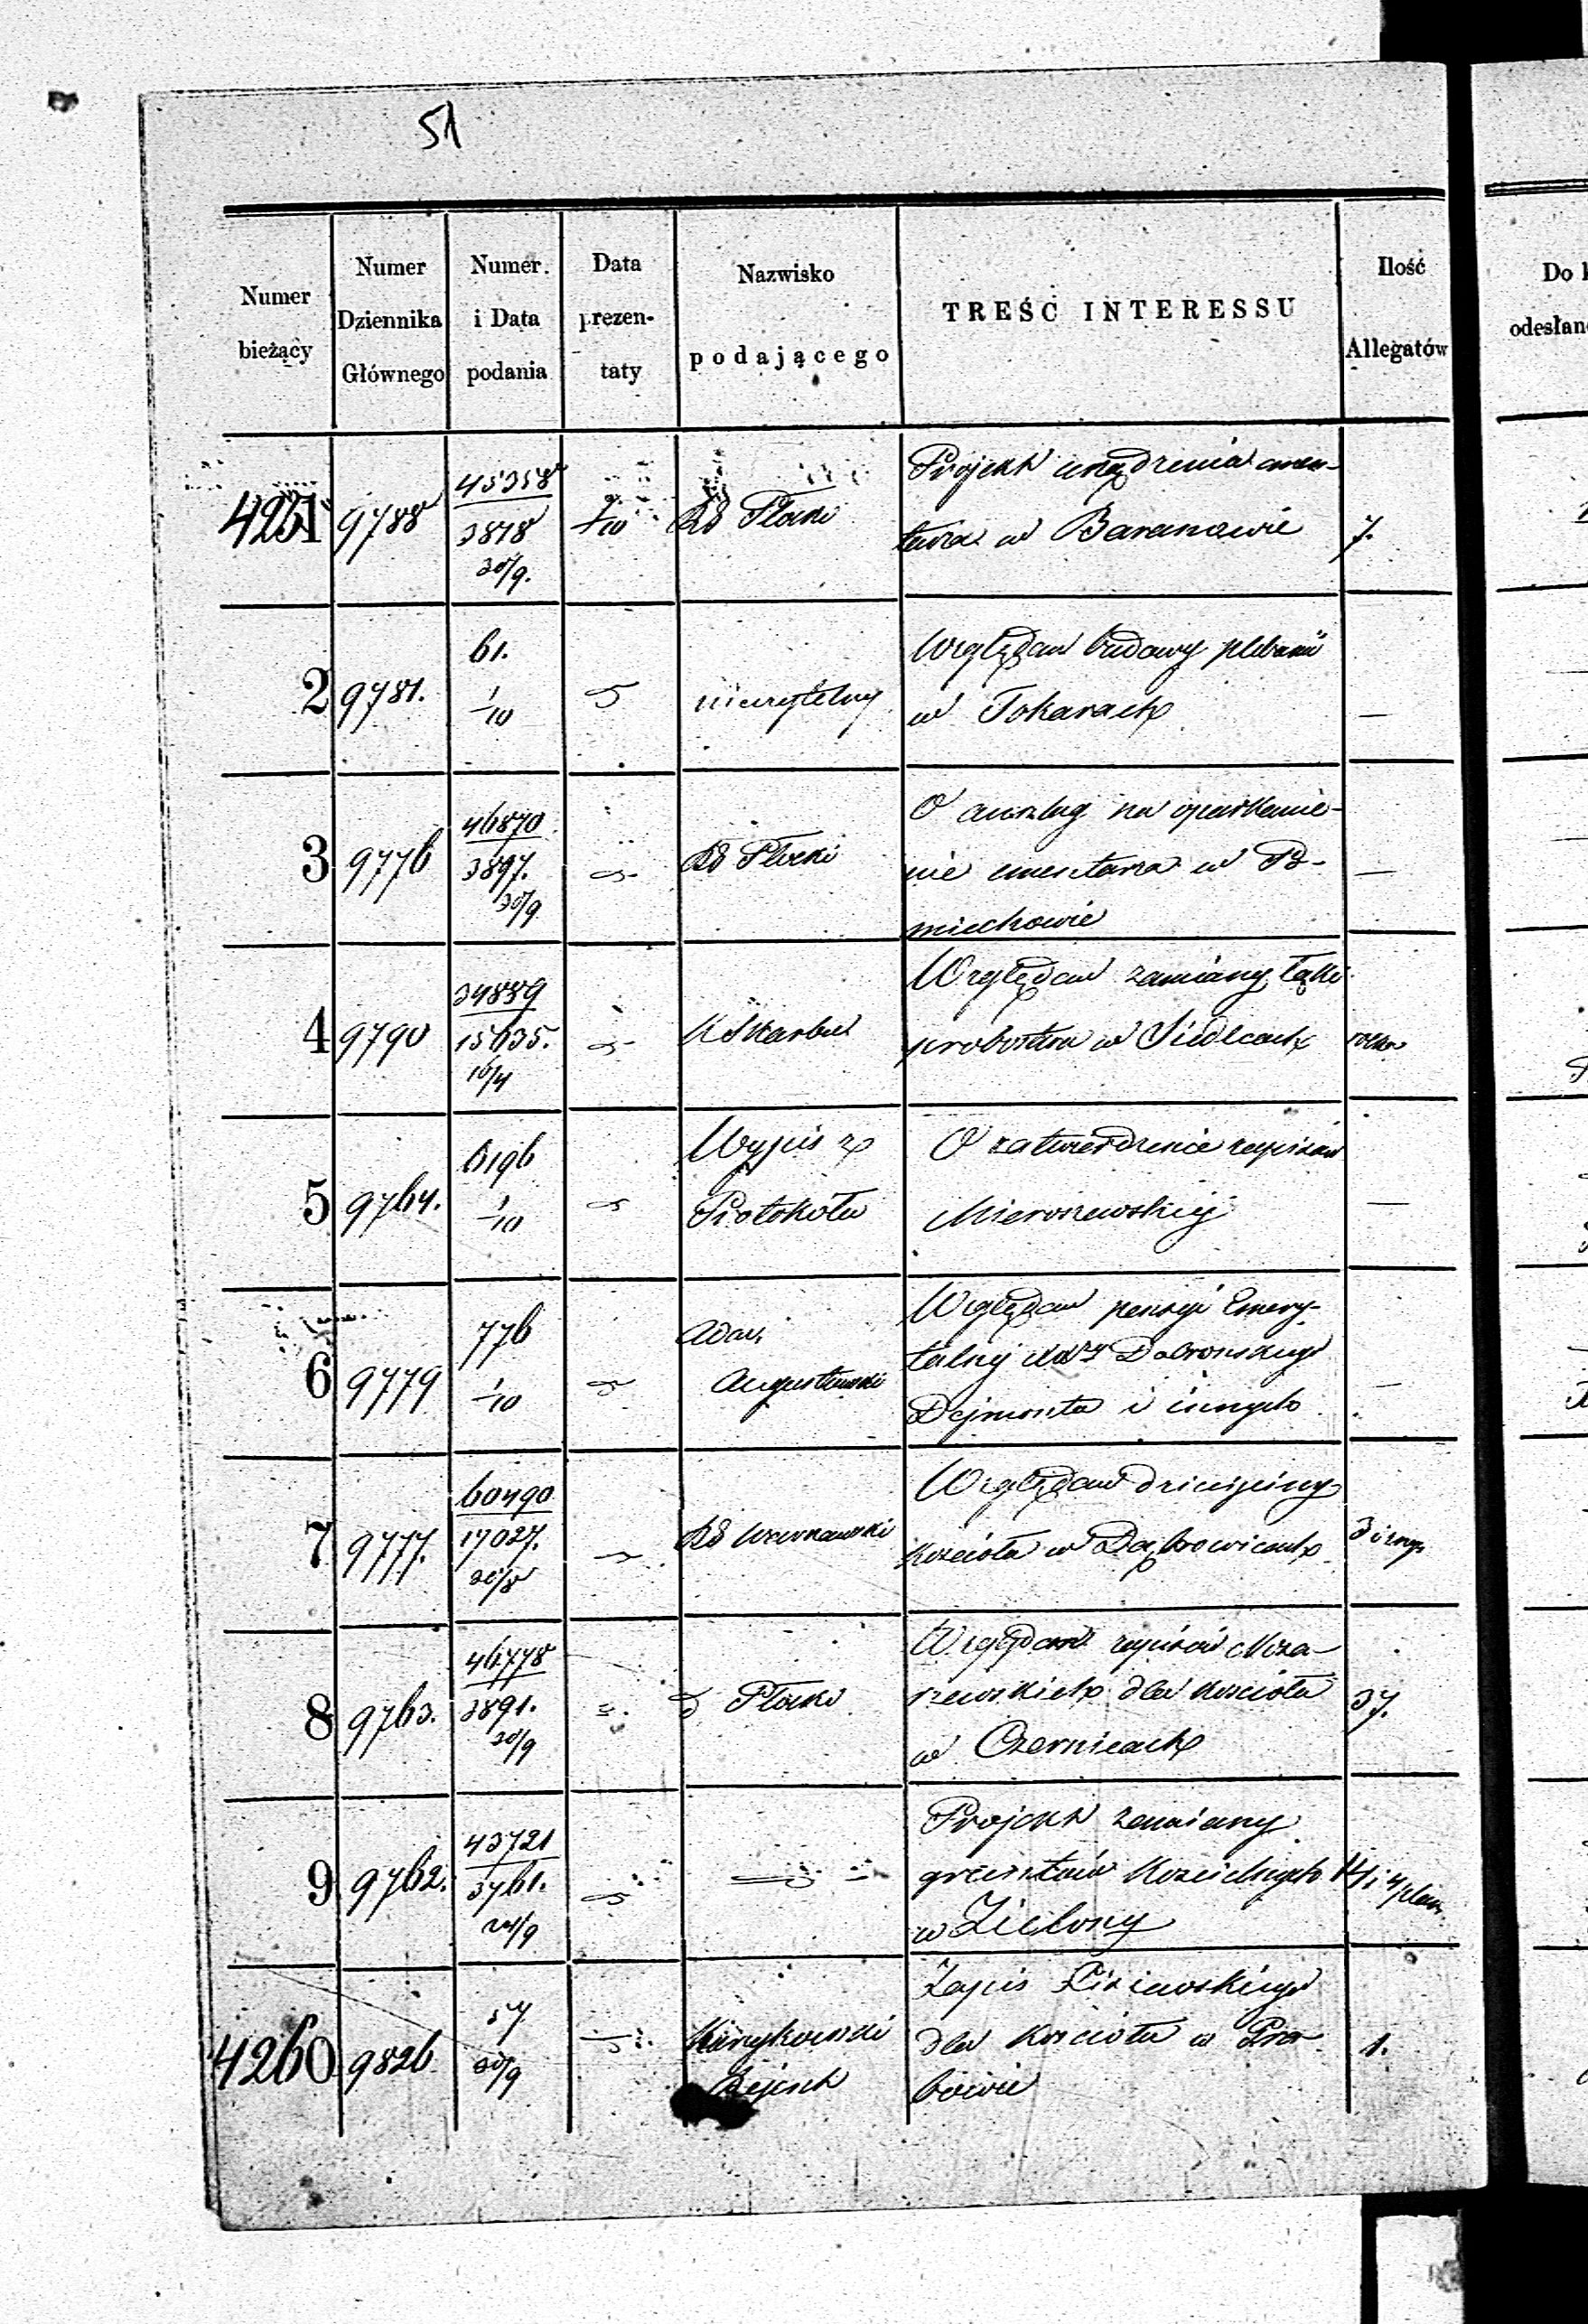 51
Numer bieżący
Numer Dziennika Głównego
Numer i Data podania
Data prezen-taty
Nazwisko podającego
TREŚĆ INTERESSU
Ilość Allegatów
Do
odesłan
4251 9788 45358 3878 30/9. 1/10 RG Płocki Projekt urządzenia cmen-
tarza w Baranowie 7.
2 9781. 61. 1/10 nieczytelny Względem budowy plebanii
w Tokarach —
3 9776 46870 3897. 30/9 RG Płocki O na oparkanie-
nie cmentarza w Po-
miechowie —
4 9790 34889 15635. 16/4 K Skarbu Względem zamiany łąki
probostwa w Siedlcach
5 9764. 6196 1/10 Wypis z Protokółu O zatwierdzenie zapisów
Mieroszewskiej —
6 9779 776 1/10 Adm. Augustowski Względem pensyi Emery-
talnej Dobronskiego
Dejmonta i innych —
7 9777. 60490 17027. RG Warszawski Względem dziesięciny
kościoła w Dąbrowicach 3 i
8 9763. 46778 3891. 30/9 Płocki Względem zapisów
dla kościoła
w Czernicach 37.
9 9762. 43721 3761. 24/9 Projekt zamiany
gruntów Kościelnych
w Zielony 14 i 4 plan.
4260 9826 57 30/9 Rejent Zapis
dla Kościoła w
bowie 1.